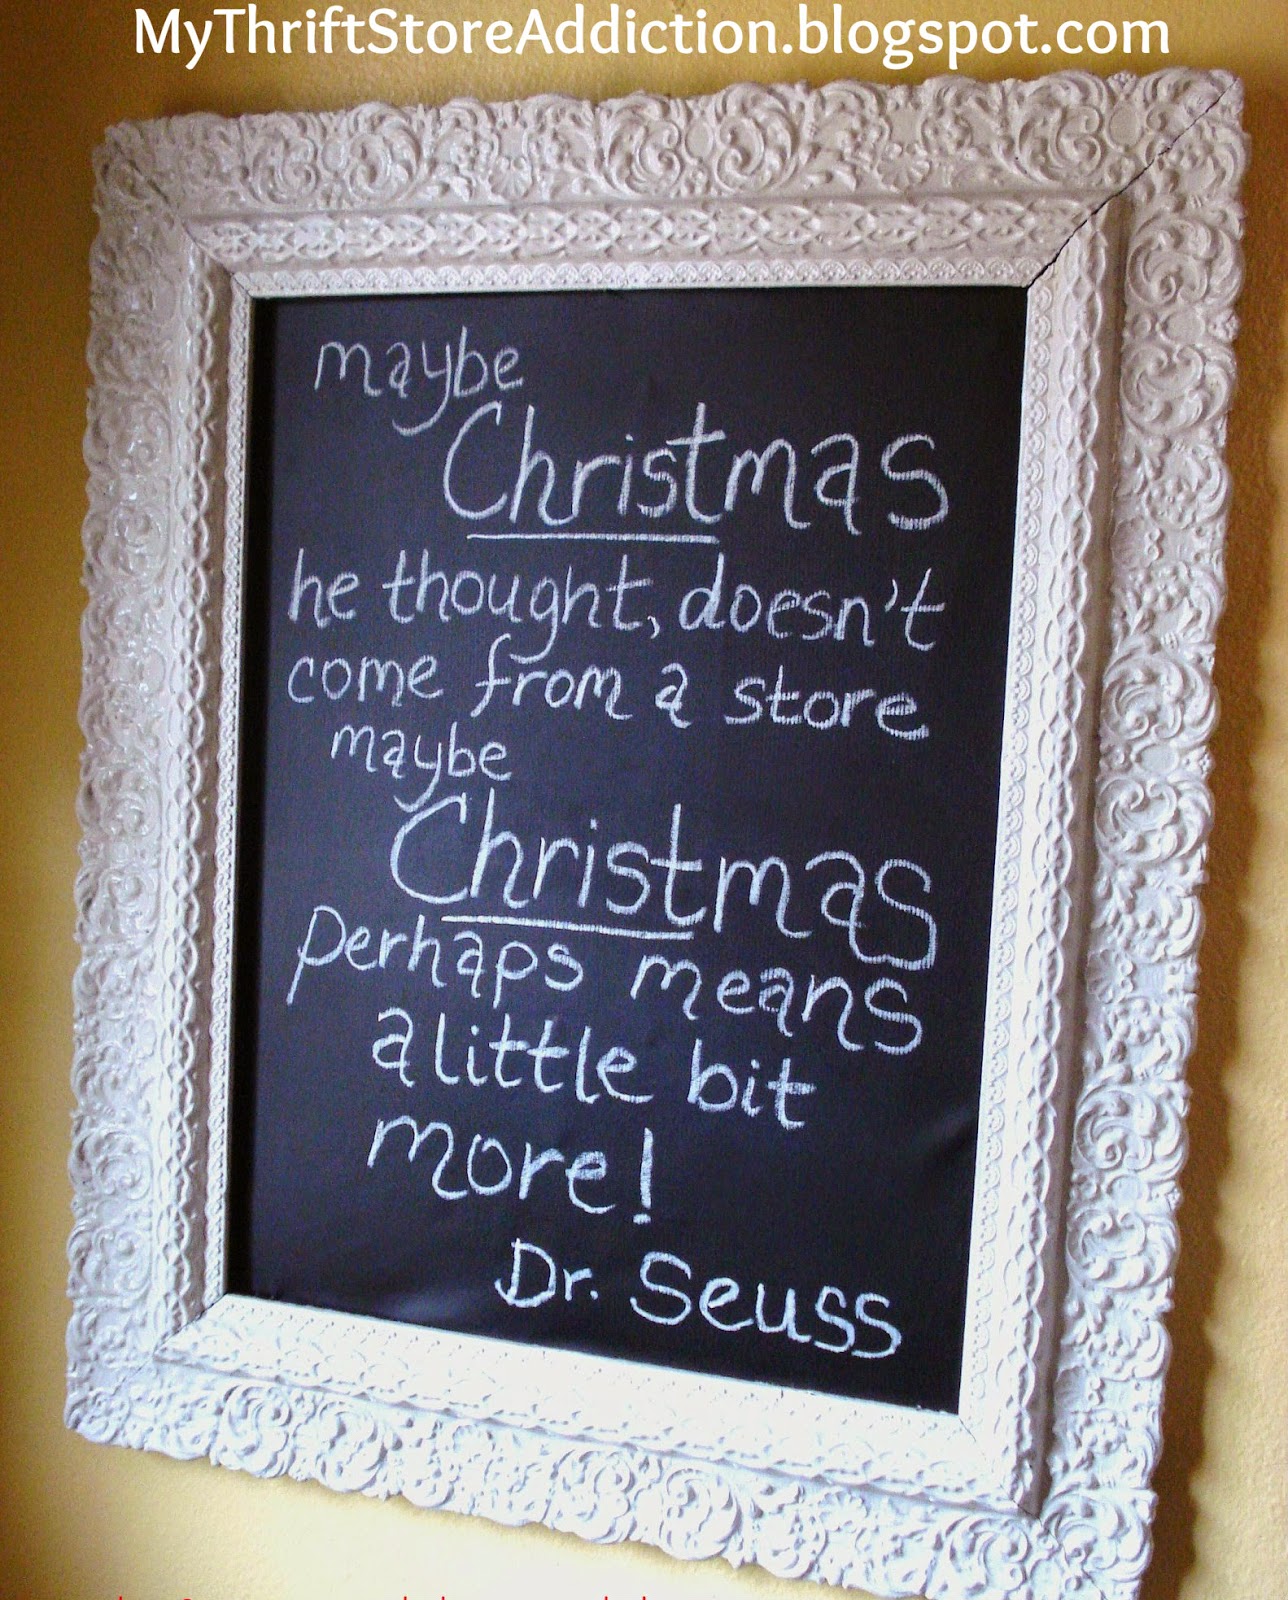 MyThriftStoreAddiction.blogspot.com
maybe
Christmas
he thought, doesn't
come from a store
maybe
Christmas
perhaps means
a little bit
more!
Dr. Seuss